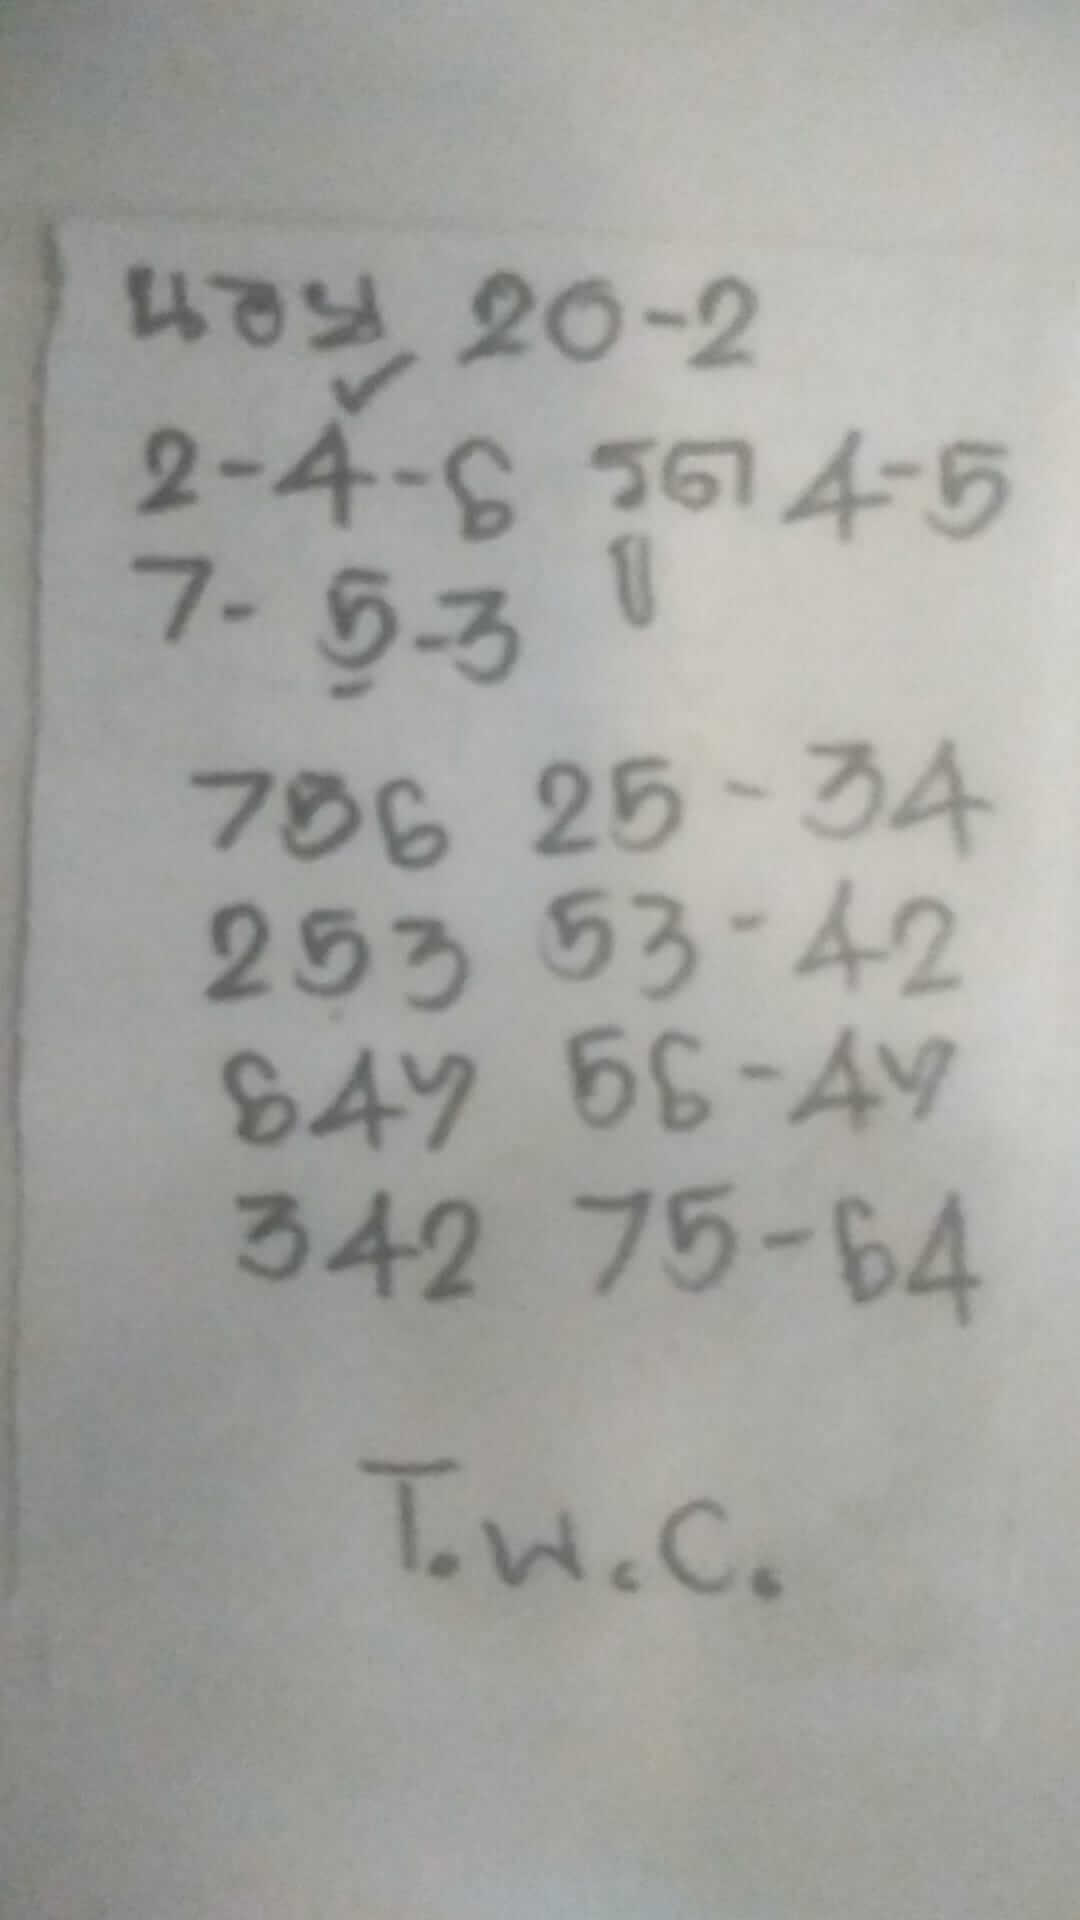 20-2
2-4-6 4-5
7-5-3
756 25-34
253 53-42
647 56-47
342 75-64
T.W.C.